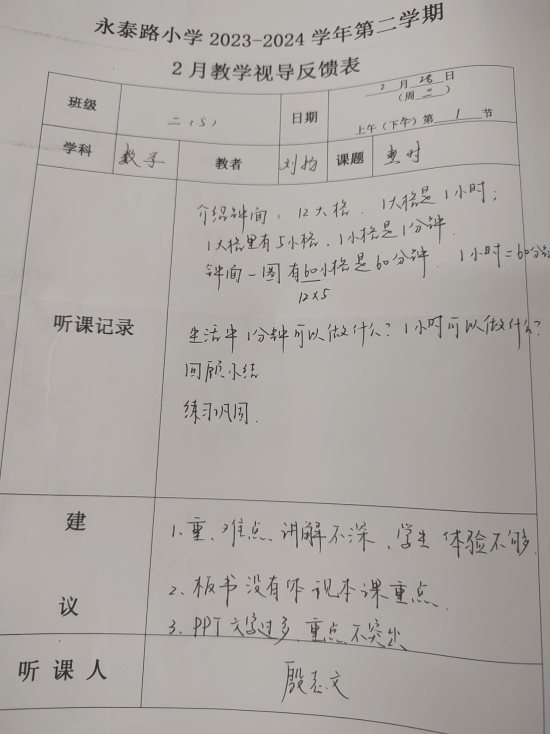 永泰路小学2023-2024学年第二学期
2月教学视导反馈表
班级 二(5) 日期 2月28日
(周三)
上午(下午)第1节
学科 数学 教者 刘杨 课题
听课记录
介绍钟面：12大格．1大格是1小时；
1大格里有5小格．1小格是1分钟．
钟面一圈有60小格是60分钟．1小时=60分钟
12×5
生活中1分钟可以做什么？1小时可以做什么？
回顾小结
练习巩固．
建议
1、重、难点、讲解不深，学生体验不够．
2、板书没有体现本课重点．
3、PPT文字过多，重点不突出
听课人 殷志文